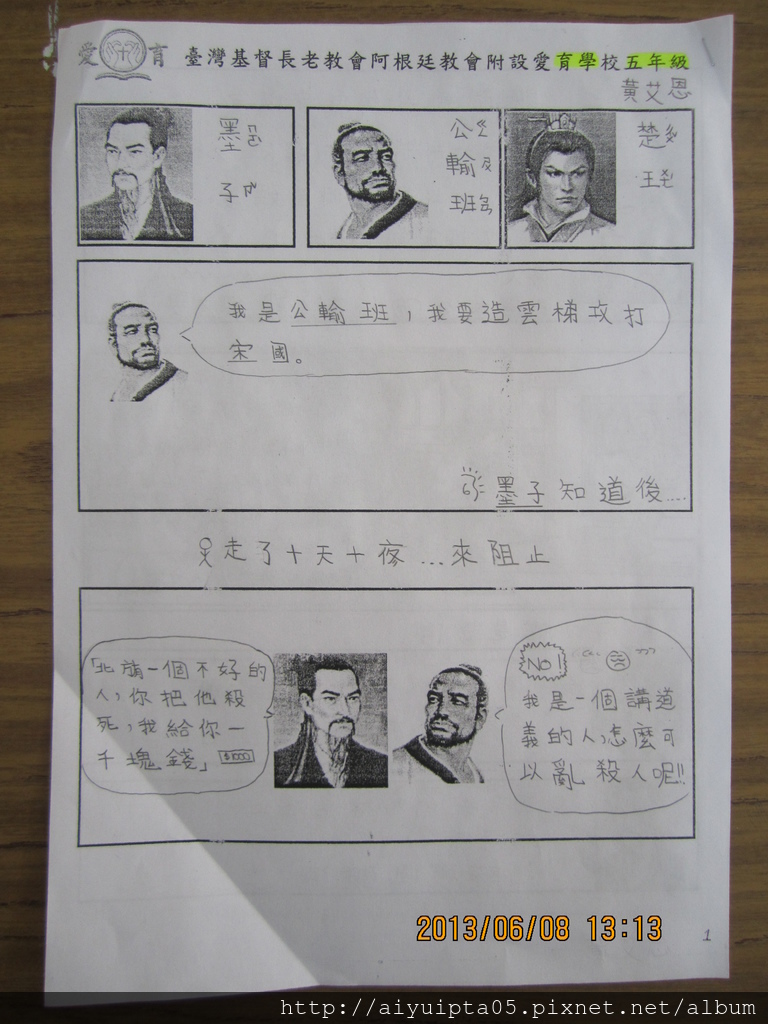 愛 育 臺灣基督長老教會阿根廷教會附設愛育學校五年級
黃艾恩
墨
子
公
輸
班
楚
王
我是公輸班，我要造雲梯攻打
宋國。
墨子知道後....
走了十天十夜...來阻止
「北方有一個不好的
人，你把他殺
死，我給你一
千塊錢」 $1000
NO!
我是一個講道
義的人，怎麼可
以亂殺人呢!!
2013/06/08 13:13
1
http://aiyuipta05.pixnet.net/album